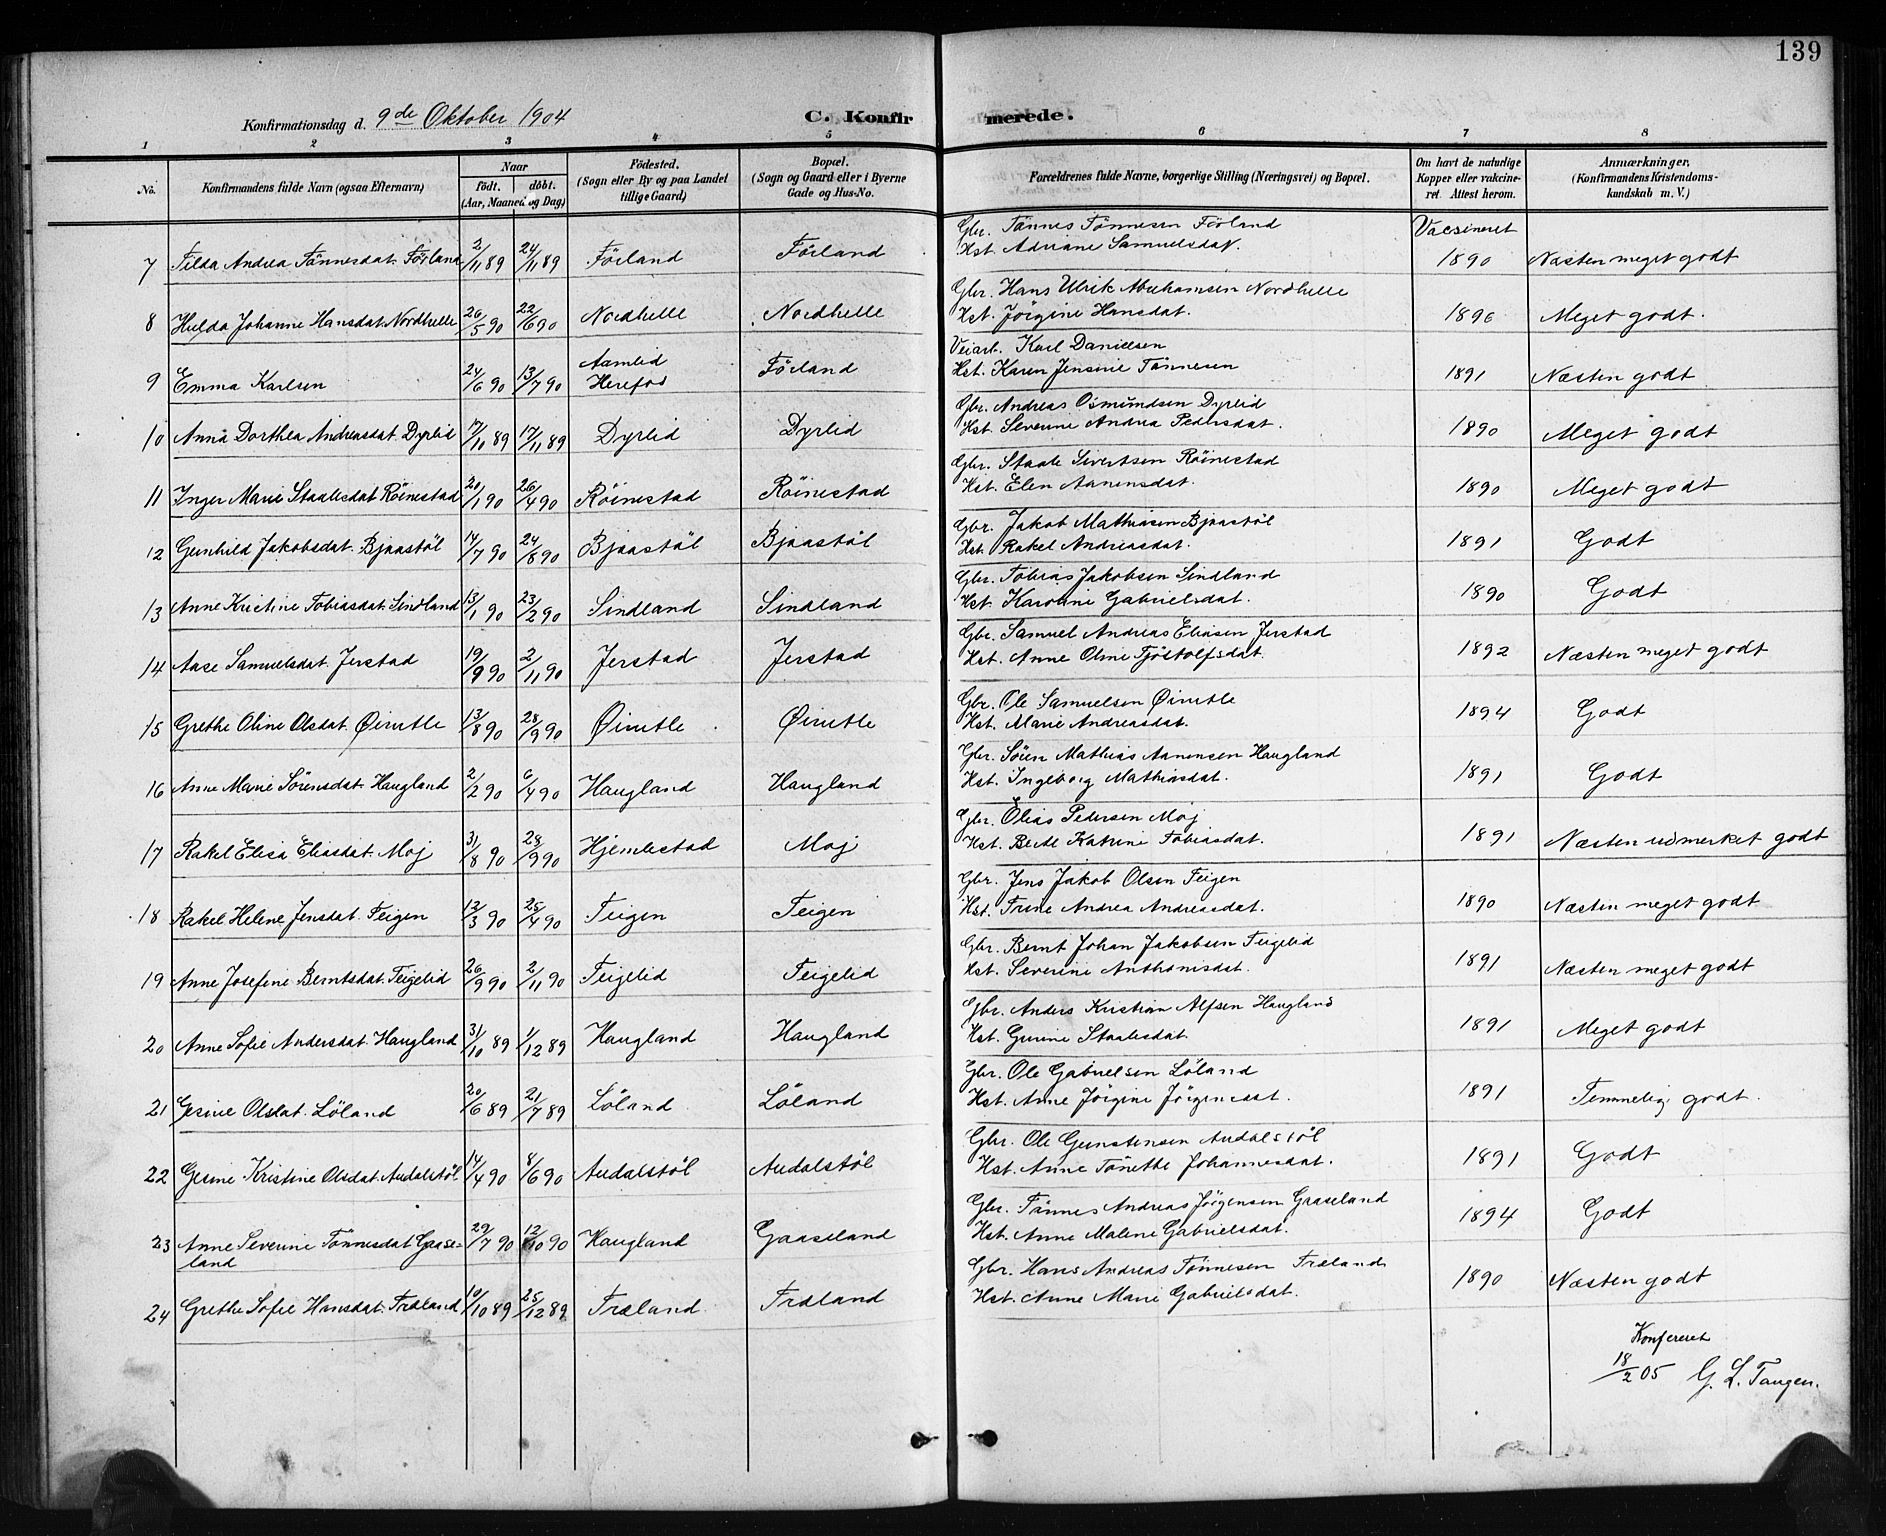 139
Konfirmationsdag d. 9de Oktober 1904 C. Konfirmerede.
1 2 3 4 5 6 7 8
No. Konfirmandens fulde Navn (ogsaa Efternavn) Naar födt. döbt. (Aar, Maaned og Dag) Födested. (Sogn eller By og paa Landet tillige Gaard) Bopæl. (Sogn og Gaard eller i Byerne Gade og Hus-No. Forældrenes fulde Navne, borgerlige Stilling (Næringsvei) og Bopæl. Om havt de naturlige Kopper eller vakcineret. Attest herom. Anmærkninger, (Konfirmandens Kristendomskundskab m. V.)
Gbr. Tönnes Tönnesen Förland Vacsineret
7 Tilda Andrea Tönnesdat. Förland 2/11 89 24/11 89 Förland Förland Hst. Adriane Samuelsdat. 1890 Næsten meget godt
Gbr. Hans Ulrik Abrahamsen Nordhelle
8 Hulda Johanne Hansdat. Nordhelle 26/5 90 22/6 90 Nordhelle Nordhelle Hst. Jörgine Hansdat. 1896 Meget godt.
Aamlid Veiarb. Karl Danielsen
9 Emma Karlsen 24/6 90 13/7 90 Herefos Förland Hst. Karen Jensine Tönnesen 1891 Næsten godt
Gbr. Andreas Osmundsen Dyrlid
10 Anna Dorthea Andreasdat. Dyrlid 17/10 89 17/11 89 Dyrlid Dyrlid Hst. Severine Andrea Pedersdat. 1890 Meget godt
Gbr. Staale Sivertsen Röinestad
11 Inger Marie Staalesdat Röinestad 20/1 90 26/4 90 Röinestad Röinestad Hst. Elen Aanensdat. 1890 Meget godt
Gbr. Jakob Mathiasen Bjaastöl
12 Gunhild Jakobsdat. Bjaastöl 14/7 90 24/8 90 Bjaastöl Bjaastöl Hst. Rakel Andreasdat. 1891 Godt
Gbr. Tobias Jakobsen Sindland
13 Anne Kristine Tobiasdat. Sindland 13/1 90 23/2 90 Sindland Sindland Hst. Karoline Gabrielsdat. 1890 Godt
Gbr. Samuel Andreas Eliasen Jerstad
14 Aase Samuelsdat. Jerstad 19/9 90 2/11 90 Jerstad Jerstad Hst. Anne Oline Tjöstolfsdat. 1892 Næsten meget godt
Gbr. Ole Samuelsen Øinetle
15 Grethe Oline Olsdat. Øinetle 13/8 90 28/9 90 Øinetle Øinetle Hst. Marie Andreasdat. 1894 Godt
Gbr. Sören Mathias Aanensen Haugland
16 Anne Marie Sörensdat. Haugland 2/2 90 6/4 90 Haugland Haugland Hst. Ingeborg Mathiasdat. 1891 Godt
Gbr. Elias Pedersen Moj
17 Rakel Elisa Eliasdat. Moj 31/8 90 28/9 90 Hjemlestad Moj Hst. Berte Katrine Tobiasdat. 1891 Næsten udmerket godt
Gbr. Jens Jakob Olsen Teigen
18 Rakel Helene Jensdat. Teigen 12/3 90 25/4 90 Teigen Teigen Hst. Trine Andrea Andreasdat. 1890 Næsten meget godt
Gbr. Bernt Johan Jakobsen Teigelid
19 Anne Josefine Berntsdat. Teigelid 26/9 90 2/11 90 Teigelid Teigelid Hst. Severine Anthonisdat. 1891 Næsten meget godt
Gbr. Anders Kristian Alfsen Haugland
20 Anne Sofie Andersdat. Haugland 31/10 89 1/12 89 Haugland Haugland Hst. Gurine Staalesdat. 1891 Meget godt
Gbr. Ole Gabrielsen Löland
21 Gesine Olsdat. Löland 20/6 89 21/7 89 Löland Löland Hst. Anne Jörgine Jörgensdat. 1891 Temmelig godt.
Gbr. Ole Gunstensen Audalstöl
22 Gesine Kristine Olsdat. Audalstöl 14/4 90 8/6 90 Audalstöl Audalstöl Hst. Anne Tönette Johannesdat. 1891 Godt
Gbr. Tönnes Andreas Jörgensen Graaseland
23 Anne Severine Tönnesdat. Gaase- 29/7 90 12/10 90 Haugland Gaaseland Hst. Anne Malene Gabrielsdat. 1894 Godt
land
Gbr. Hans Andreas Tönnesen Træland
24 Grethe Sofie Hansdat. Træland 10/10 89 25/12 89 Træland Træland Hst. Anne Marie Gabrielsdat. 1890 Næsten godt
Konfereret
18/2 05 G. L. Tangen.